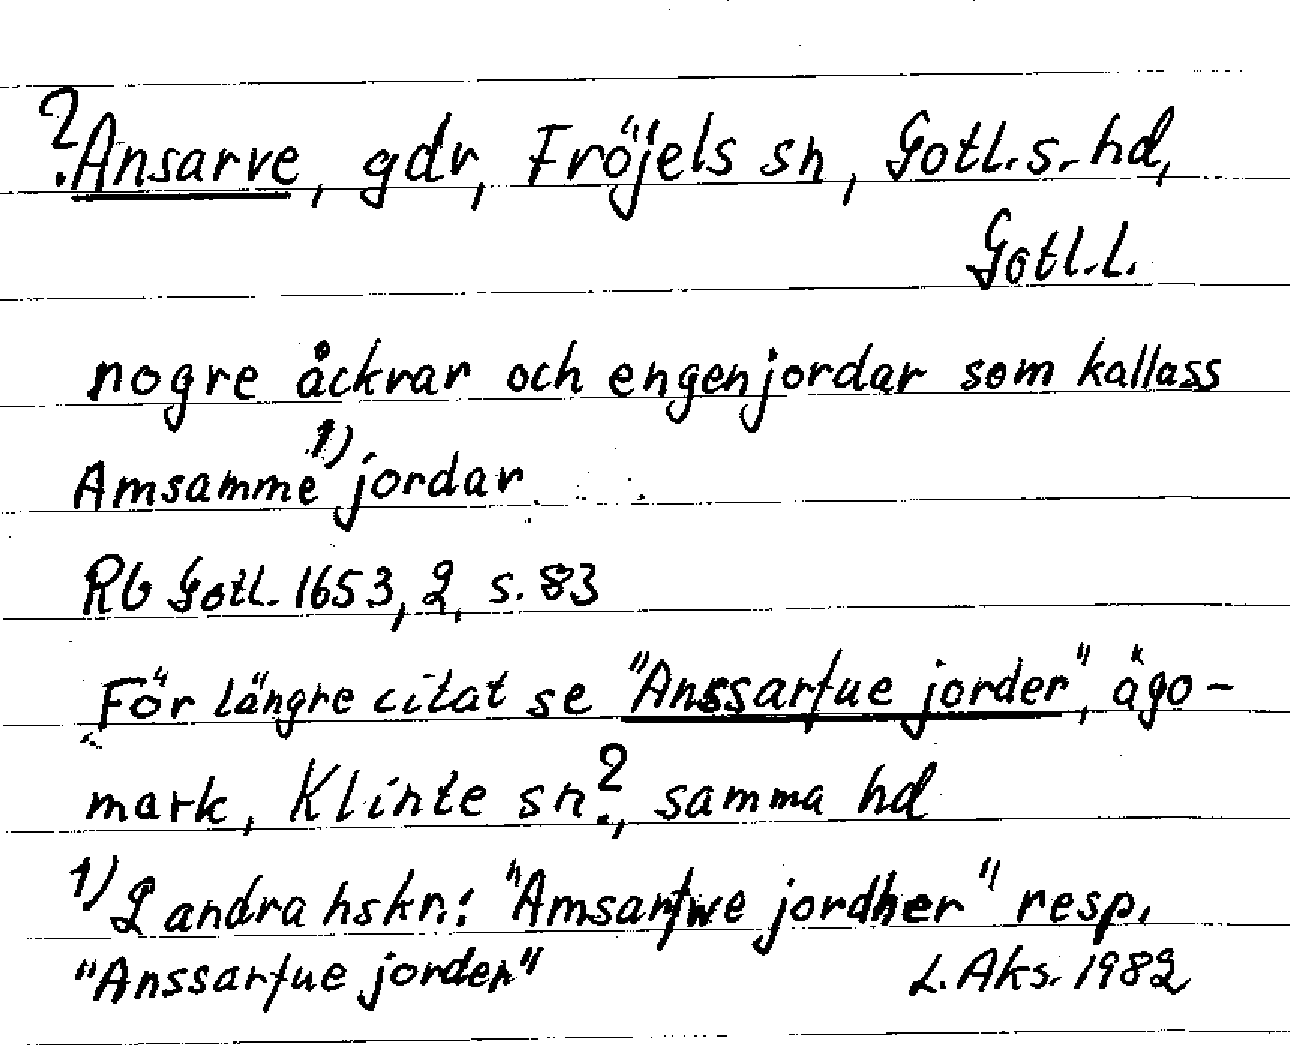 ? Ansarve, gdr, Fröjels sn, Gotl. s. hd,
Gotl. L.
nogre åckrar och engenjordar som kallass
Amsamme 1) jordar
Rb Gotl. 1653, 2, s. 83
För längre citat se "Anssarfue jorder", ägo-
mark, Klinte sn?, samma hd
1) 2 andra hskr.: "Amsarfwe jordher" resp.
"Anssarfue jorder" L. Aks. 1982